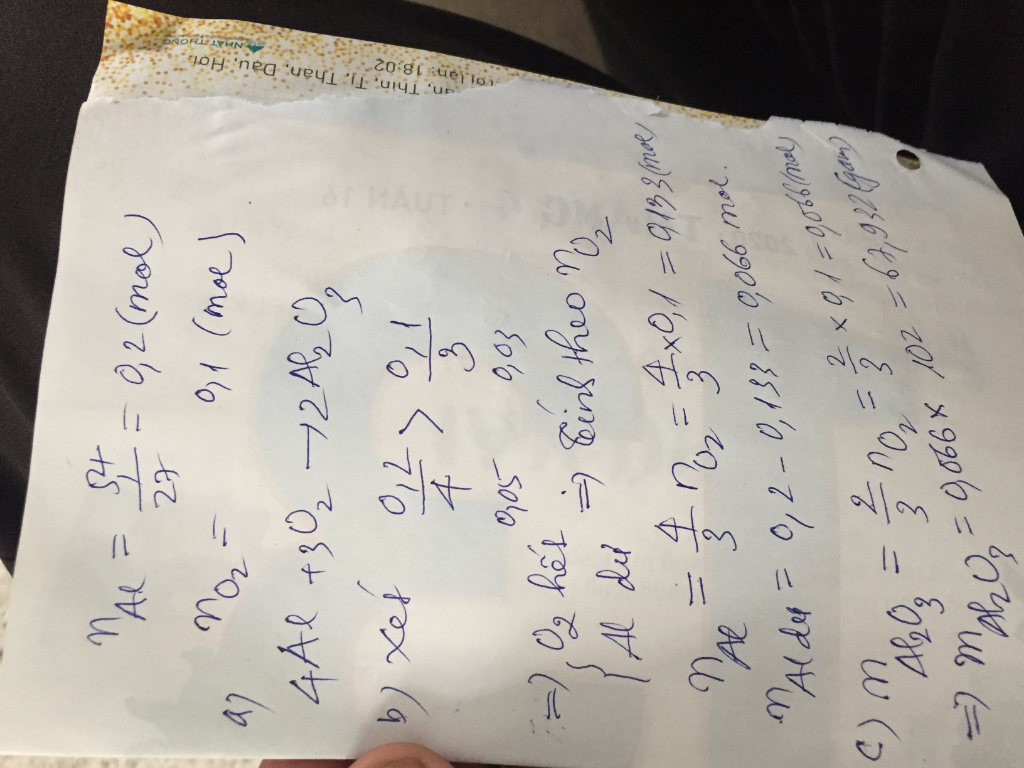 n_Al = 54/27 = 0,2 (mol)
n_O2 = 0,1 (mol)
a) 4Al + 3O2 → 2Al2O3
b) xét 0,2/4 > 0,1/3
0,05 0,03
=> { O2 hết => tính theo n_O2
Al dư
n_Al = 4/3 n_O2 = 4/3 x 0,1 = 0,133 (mol)
n_Al dư = 0,2 - 0,133 = 0,066 mol.
c) n_Al2O3 = 2/3 n_O2 = 2/3 x 0,1 = 0,066 (mol)
=> m_Al2O3 = 0,066 x 102 = 67,932 (gam)
NHẤT THÔNG
, Thìn, Tị, Thân, Dậu, Hợi
lặn: 18:02
THÁNG 4 - TUẦN 16